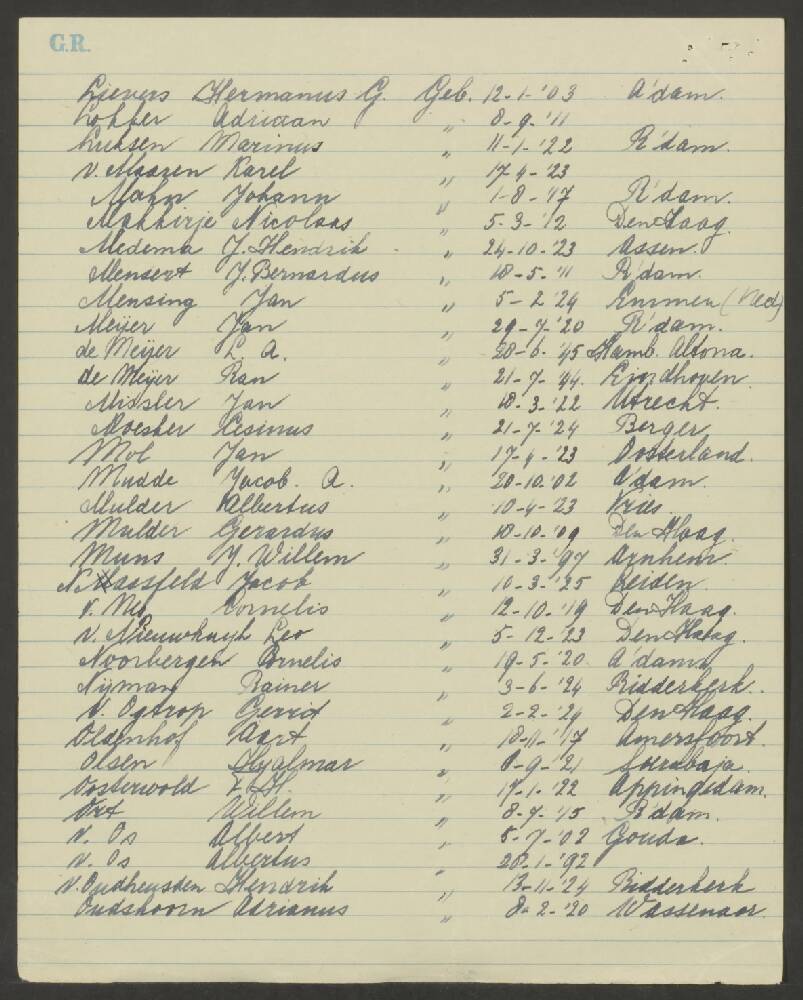 G.R.
Lievers Hermanus G. Geb. 12-1-'03 A'dam.
Lokker Adriaan " 8-9-'11
Luksen Marinus " 11-1-'22 R'dam.
v. Maaren Karel " 17-4-'23
Mahn Johann " 1-8-'17 R'dam.
Makkirje Nicolaas " 5-3-'12 Den Haag
Medema J. Hendrik " 24-10-'23 Assen.
Mensert J. Bernardus " 18-5-'11 R'dam.
Mensing Jan " 5-2-'24 Emmen (Ned)
Meijer Jan " 29-7-'20 R'dam.
de Meijer L. A. " 28-6-'45 Hamb. Altona.
de Meijer Ran " 21-7-'44. Eindhoven
Missler Jan " 18-3-'22 Utrecht.
Moesker Resinus " 21-7-'24 Berger
Mol Jan " 17-4-'23 Oosterland.
Mudde Jacob. A. " 20-10-'02 A'dam
Mulder Albertus " 10-4-'23 Vries
Mulder Gerardus " 18-10-'09 Den Haag.
Muns J. Willem " 31-3-'97 Arnhem
N. Maasfeld Jacob " 10-3-'25 Leiden.
v. Nes Cornelis " 12-10-'19 Den Haag.
v. Nieuwkuyk Leo " 5-12-'23 Den Haag.
Noorbergen Cornelis " 19-5-'20. A'dam
Nijman Rainer " 3-6-'24 Ridderkerk.
v. Ogtrop Gerrit " 2-2-'24 Den Haag.
Oldenhof Aart " 18-11-'17 Amersfoort.
Olsen Hyalmar " 8-9-'21 Soerabaja
Oosterwold L. H. " 17-1-'22 Appingedam.
Ort Willem " 8-7-'15 R'dam.
v. Os Albert " 5-7-'02 Gouda.
v. Os Albertus " 20-1-'92
v. Oudheusden Hendrik " 13-11-'24 Ridderkerk
Oudshoorn Adrianus " 8-2-'20 Wassenaar